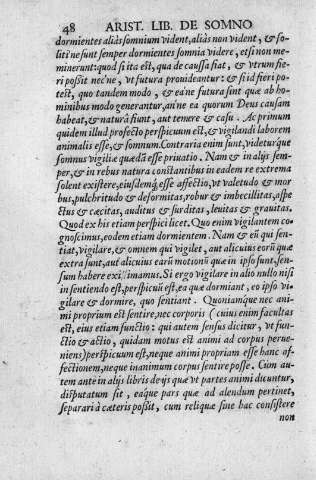 48 ARIST. LIB. DE SOMNO
dormientes aliàs somnium vident, aliàs non vident, & so-
liti ne sunt semper dormientes somnia videre, etsi non me-
minerunt: quod si ita est, qua de caussa fiat, & vtrum fie-
ri possit necne, vt futura prouideantur: & si id fieri po-
test, quo tandem modo, & eáne futura sint quæ ab ho-
minibus modo generantur, an ne ea quorum Deus causam
habeat, & naturâ fiunt, aut temere & casu. Ac primum
quidem illud profecto perspicuum est, & vigilandi laborem
animalis esse, & somnum. Contraria enim sunt, videturque
somnus vigiliæ quædã esse priuatio. Nam & in alijs sem-
per, & in rebus natura constantibus in eadem re extrema
solent existere, eiusdemq; esse affectio, vt valetudo & mor
bus, pulchritudo & deformitas, robur & imbecillitas, aspe
ctus & cæcitas, auditus & surditas, leuitas & grauitas.
Quod ex his etiam perspici licet. Quo enim vigilantem co
gnoscimus, eodem etiam dormientem. Nam & eũ qui sen-
tiat, vigilare, & omnem qui vigilet, aut alicuius eorũ quæ
extra sunt, aut alicuius earũ motionũ quæ in ipso sunt, sen-
sum habere existimamus. Si ergo vigilare in alio nullo nisi
in sentiendo est, perspicuũ est, ea quæ dormiant, eo ipso vi-
gilare & dormire, quo sentiant. Quoniamque nec ani-
mi proprium est sentire, nec corporis (cuius enim facultas
est, eius etiam functio: qui autem sensus dicitur, vt fun-
ctio & actio, quidam motus est animi ad corpus perue-
niens) perspicuum est, neque animi propriam esse hanc af-
fectionem, neque inanimum corpus sentire posse. Cùm au-
tem ante in alijs libris de ijs quæ vt partes animi dicuntur,
disputatum sit, eaque pars quæ ad alendum pertinet,
separari à cæteris possit, cum reliquæ sine hac consistere
non